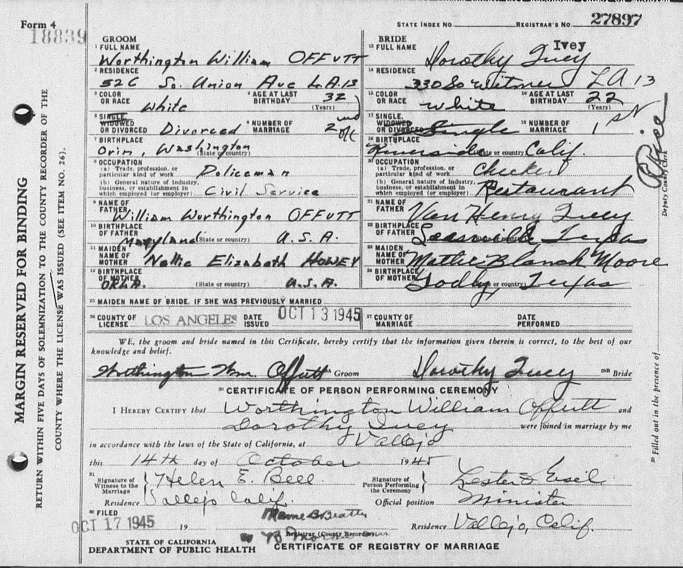 Form 4
18839
STATE INDEX NO. REGISTRAR'S NO. 27897
GROOM
1 FULL NAME Worthington William OFFUTT
2 RESIDENCE 526 So. Union Ave L.A. 13
3 COLOR OR RACE White 4 AGE AT LAST BIRTHDAY 32 (Years)
5 SINGLE, WIDOWED OR DIVORCED Divorced 6 NUMBER OF MARRIAGE 2nd
7 BIRTHPLACE Orin, Washington (State or country)
8 OCCUPATION
(a) Trade, profession, or particular kind of work Policeman
(b) General nature of industry, business, or establishment in which employed (or employer) Civil Service
9 NAME OF FATHER William Worthington OFFUTT
10 BIRTHPLACE OF FATHER Maryland (State or country) U.S.A.
11 MAIDEN NAME OF MOTHER Nellie Elizabeth HOWEY
12 BIRTHPLACE OF MOTHER OKLA. (State or country) U.S.A.
BRIDE
13 FULL NAME Dorothy Ivey Ivey
14 RESIDENCE 330 So Witmer LA 13
15 COLOR OR RACE White 16 AGE AT LAST BIRTHDAY 22 (Years)
17 SINGLE, WIDOWED OR DIVORCED Single 18 NUMBER OF MARRIAGE 1st
19 BIRTHPLACE Riverside (State or country) Calif.
20 OCCUPATION
(a) Trade, profession, or particular kind of work Checker
(b) General nature of industry, business, or establishment in which employed (or employer) Restaurant
21 NAME OF FATHER Van Henry Ivey
22 BIRTHPLACE OF FATHER Texas
23 MAIDEN NAME OF MOTHER Mattie Blanch Moore
24 BIRTHPLACE OF MOTHER Texas
25 MAIDEN NAME OF BRIDE, IF SHE WAS PREVIOUSLY MARRIED
26 COUNTY OF LICENSE LOS ANGELES DATE ISSUED OCT 13 1945 27 COUNTY OF MARRIAGE DATE PERFORMED
WE, the groom and bride named in this Certificate, hereby certify that the information given therein is correct, to the best of our
knowledge and belief.
Worthington Wm. Offutt Groom Dorothy Ivey Bride
CERTIFICATE OF PERSON PERFORMING CEREMONY
I HEREBY CERTIFY that Worthington William Offutt and
Dorothy Ivey were joined in marriage by me
in accordance with the laws of the State of California, at Vallejo
this 14th day of October 1945
Signature of Witness to the Marriage Helen E. Bell
Residence Vallejo Calif.
Signature of Person Performing the Ceremony Lester
Official position Minister
FILED OCT 17 1945 19 Mame B. Beatty
Registrar (County Recorder)
Residence Vallejo, Calif.
STATE OF CALIFORNIA
DEPARTMENT OF PUBLIC HEALTH CERTIFICATE OF REGISTRY OF MARRIAGE
MARGIN RESERVED FOR BINDING
RETURN WITHIN FIVE DAYS OF SOLEMNIZATION TO THE COUNTY RECORDER OF THE
COUNTY WHERE THE LICENSE WAS ISSUED (SEE ITEM NO. 26).
Deputy County Clerk
Filled out in the presence of